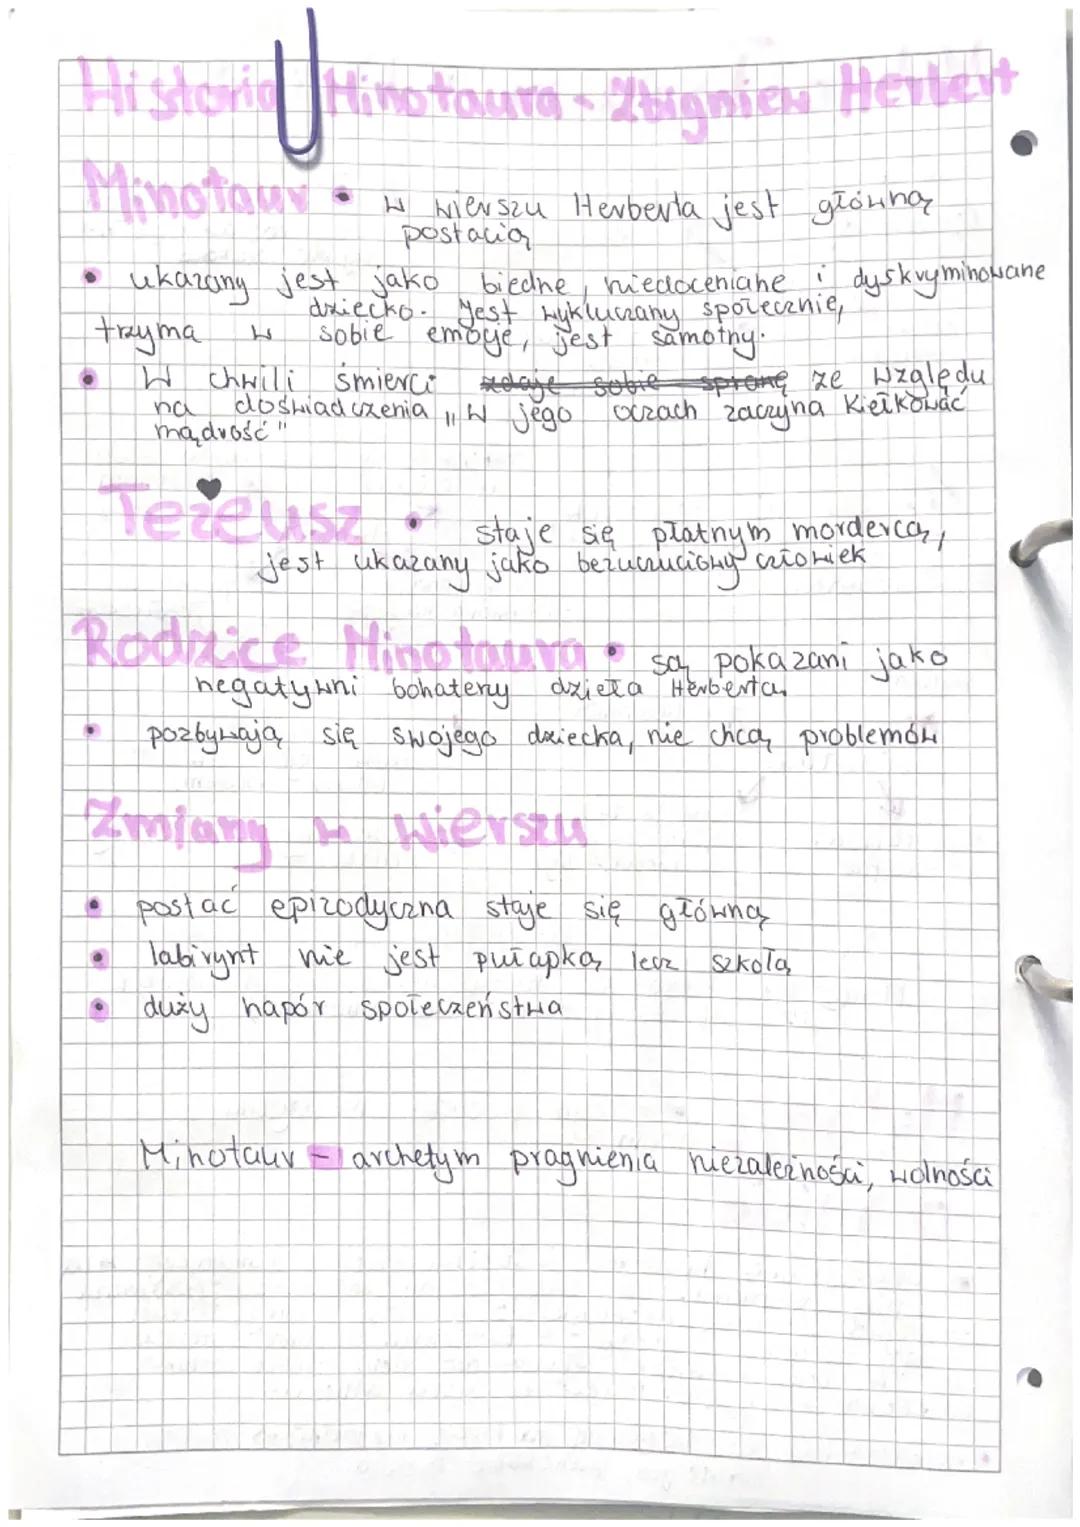 Historia Minotaura - Zbigniew Herbert
Minotaur • w wierszu Herberta jest główną
postacią
• ukazany jest jako biedne, niedoceniane i dyskryminowane
dziecko. Jest wykluczany społecznie,
trzyma w sobie emocje, jest samotny.
• W chwili śmierci zdaje sobie sprawę ze względu
na doświadczenia „W jego oczach zaczyna kiełkować
mądrość"
Tezeusz • staje się płatnym mordercą,
jest ukazany jako bezuczuciowy człowiek
Rodzice Minotaura • są pokazani jako
negatywni bohaterzy dzieła Herberta
• pozbywają się swojego dziecka, nie chcą problemów
Zmiany w wierszu
• postać epizodyczna staje się główną
• labirynt nie jest pułapką, lecz szkołą
• duży napór społeczeństwa
Minotaur - archetym pragnienia niezależności, wolności